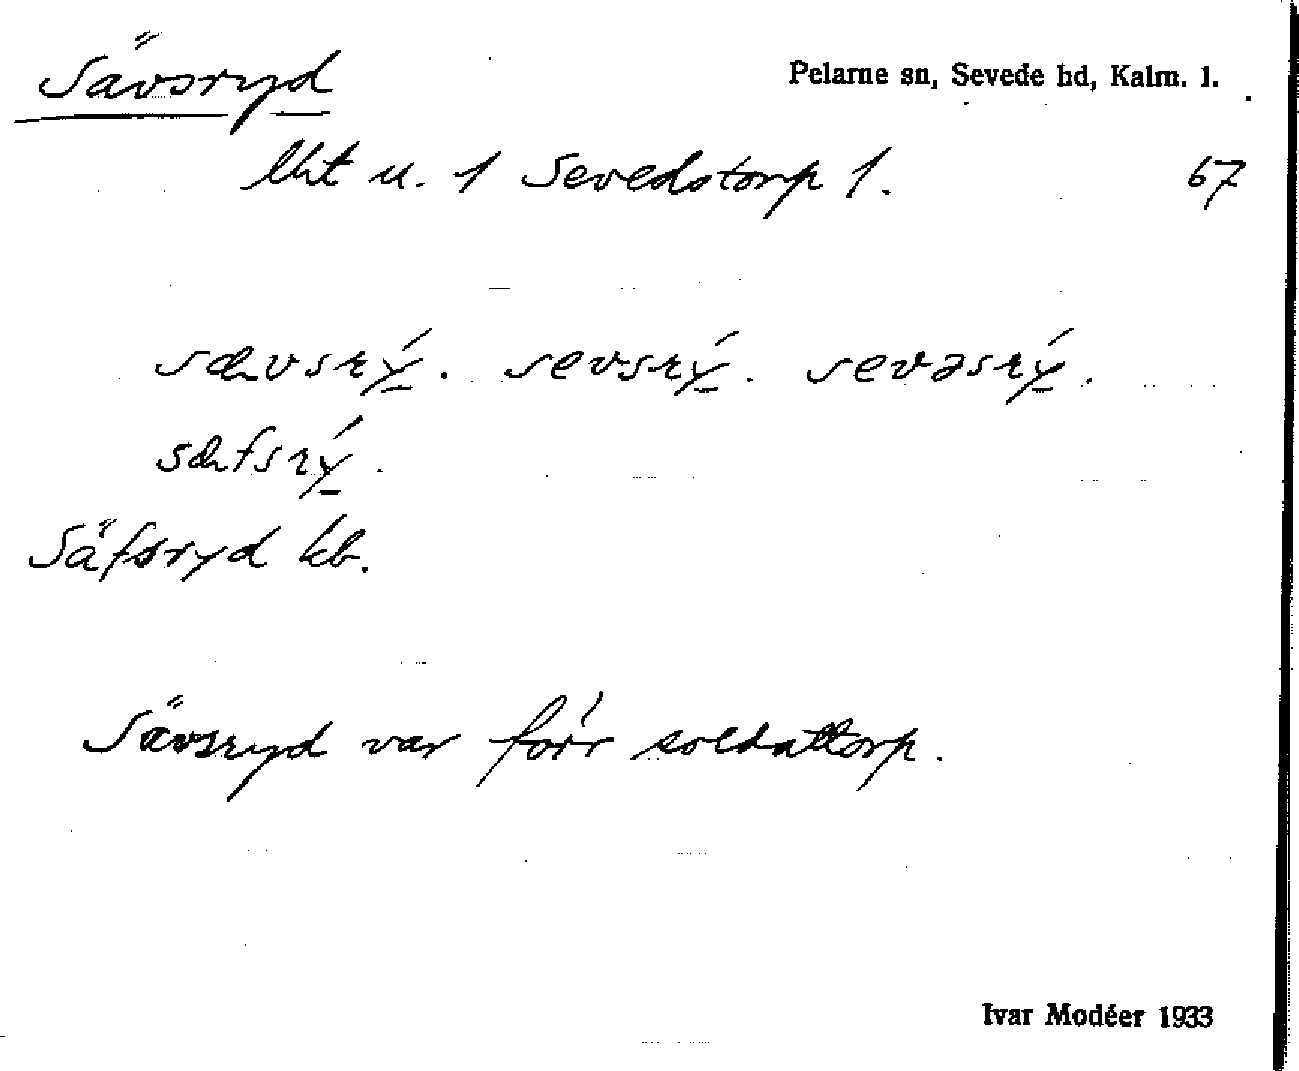 Sävsryd
Pelarne sn, Sevede hd, Kalm. l.
lht u. 1 Sevedstorp 1.
67
sævsrý. sevsrý. sevəsrý.
sæfsrý.
Säfsryd kb.
Sävsryd var förr soldattorp.
Ivar Modéer 1933